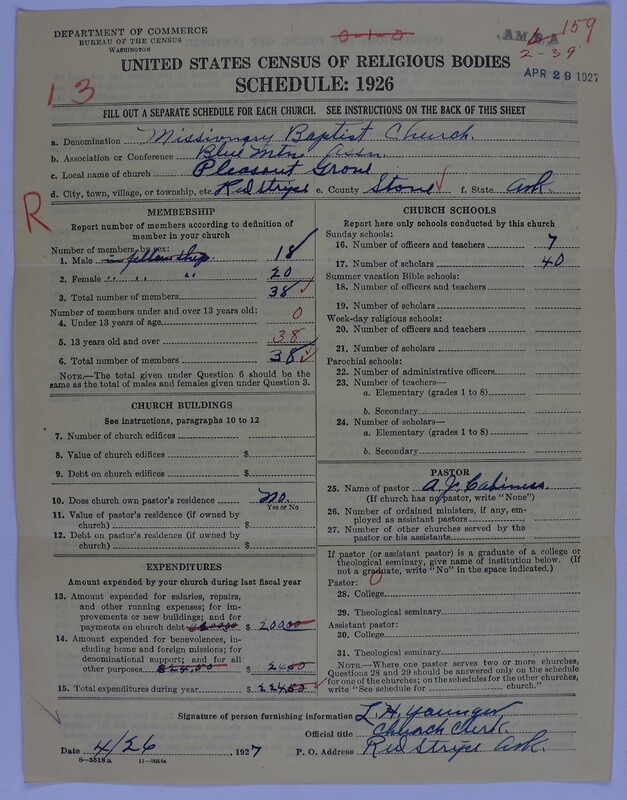 DEPARTMENT OF COMMERCE
BUREAU OF THE CENSUS
WASHINGTON
0-1-0
AMBA 159
2-39
APR 29 1927
UNITED STATES CENSUS OF RELIGIOUS BODIES
SCHEDULE: 1926
13
FILL OUT A SEPARATE SCHEDULE FOR EACH CHURCH. SEE INSTRUCTIONS ON THE BACK OF THIS SHEET
a. Denomination Missionary Baptist Church.
b. Association or Conference Blue Mtn. Assn.
c. Local name of church Pleasant Grove
d. City, town, village, or township, etc. Red Stripe e. County Stone f. State Ark.
R
MEMBERSHIP
Report number of members according to definition of member in your church
Number of members by sex:
1. Male in fellowship. 18
2. Female " " " 20
3. Total number of members 38
Number of members under and over 13 years old:
4. Under 13 years of age 0
5. 13 years old and over 38
6. Total number of members 38
NOTE.—The total given under Question 6 should be the same as the total of males and females given under Question 3.
CHURCH BUILDINGS
See instructions, paragraphs 10 to 12
7. Number of church edifices
8. Value of church edifices $
9. Debt on church edifices $
10. Does church own pastor's residence No.
Yes or No
11. Value of pastor's residence (if owned by church) $
12. Debt on pastor's residence (if owned by church) $
EXPENDITURES
Amount expended by your church during last fiscal year
13. Amount expended for salaries, repairs, and other running expenses; for improvements or new buildings; and for payments on church debt $ 200.00
14. Amount expended for benevolences, including home and foreign missions; for denominational support; and for all other purposes $24.50 $ 24.50
15. Total expenditures during year $ 224.50
CHURCH SCHOOLS
Report here only schools conducted by this church
Sunday schools:
16. Number of officers and teachers 7
17. Number of scholars 40
Summer vacation Bible schools:
18. Number of officers and teachers
19. Number of scholars
Week-day religious schools:
20. Number of officers and teachers
21. Number of scholars
Parochial schools:
22. Number of administrative officers
23. Number of teachers—
a. Elementary (grades 1 to 8)
b. Secondary
24. Number of scholars—
a. Elementary (grades 1 to 8)
b. Secondary
PASTOR
25. Name of pastor A. J. Cabiness.
(If church has no pastor, write "None")
26. Number of ordained ministers, if any, employed as assistant pastors
27. Number of other churches served by the pastor or his assistants
If pastor (or assistant pastor) is a graduate of a college or theological seminary, give name of institution below. (If not a graduate, write "No" in the space indicated.)
Pastor:
28. College
29. Theological seminary
Assistant pastor:
30. College
31. Theological seminary
NOTE.—Where one pastor serves two or more churches, Questions 28 and 29 should be answered only on the schedule for one of the churches; on the schedules for the other churches, write "See schedule for church."
Signature of person furnishing information L. H. Younger
Official title Church Clerk.
Date 4/26, 1927 P. O. Address Red Stripe Ark.
8-5518a 11-9054a